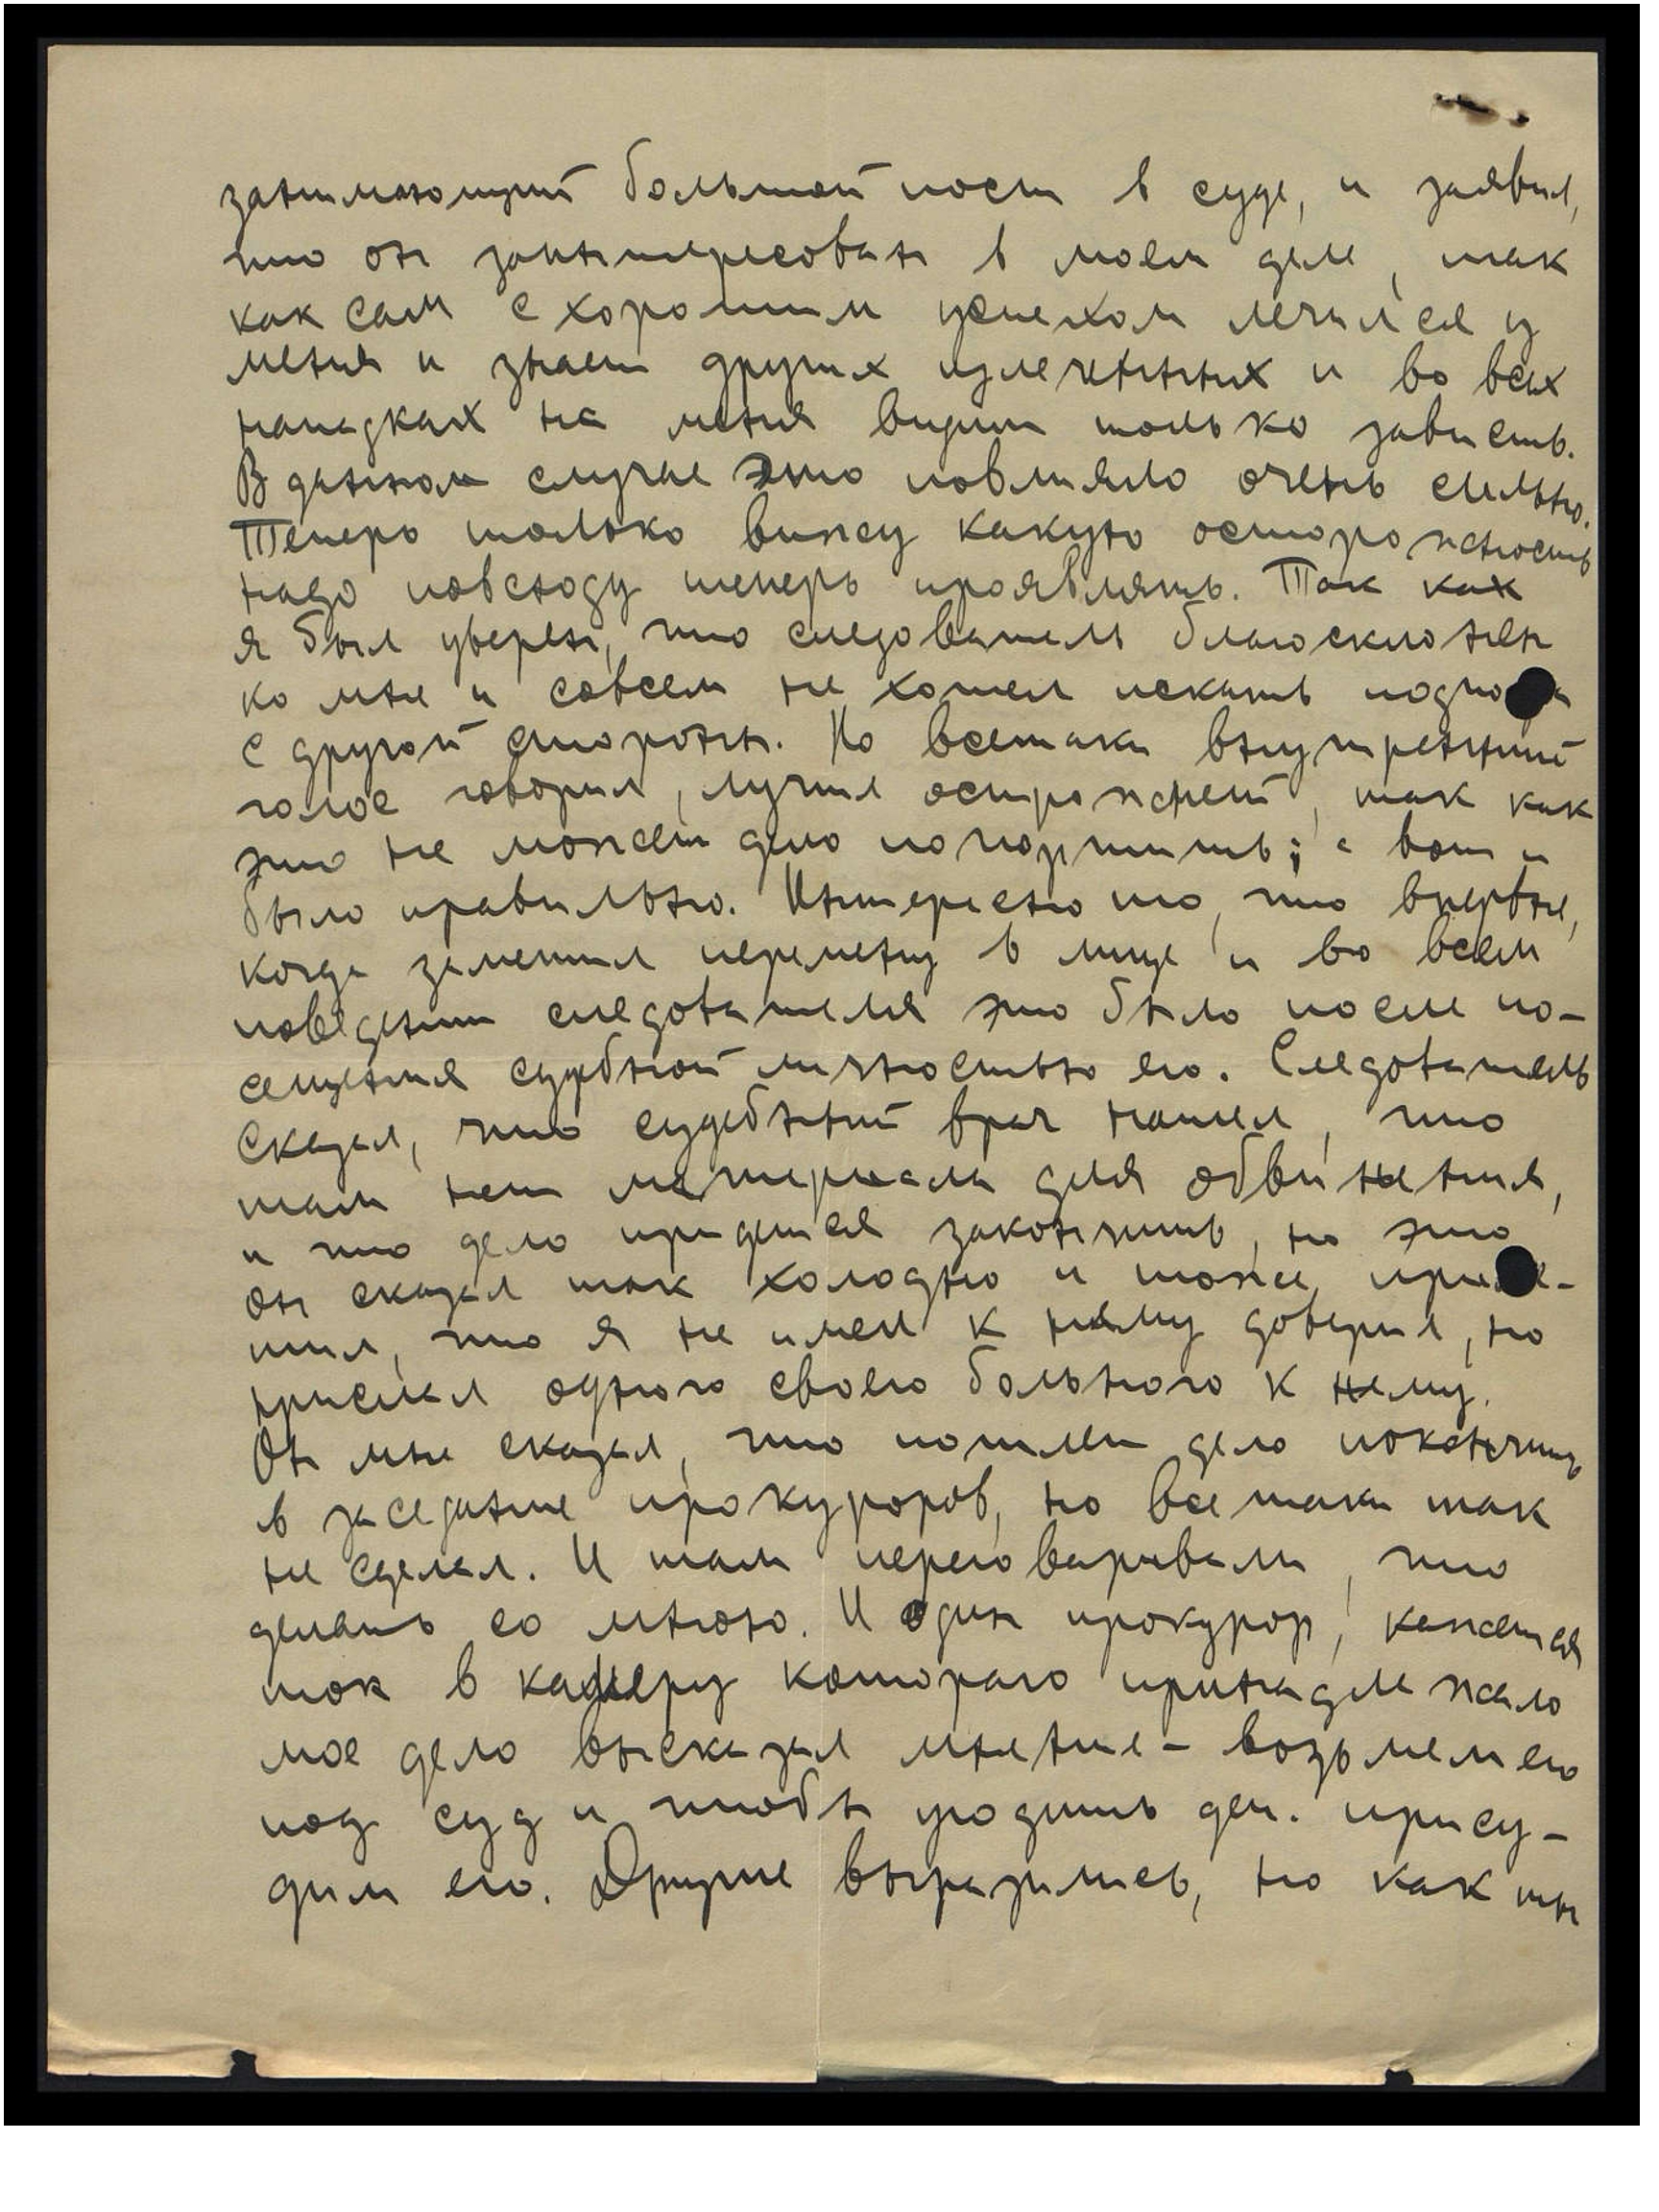 занимающий большой пост в суде, и заявил,
что он заинтересован в моем деле, так
как сам с хорошим успехом лечился у
меня и знает других излеченных и во всех
нападках на меня видит только зависть.
В данном случае это повлияло очень сильно.
Теперь только вижу какую осторожность
надо повсюду теперь проявлять. Так как
я был уверен, что следователь благосклонен
ко мне и совсем не хотел искать
с другой стороны. Но всетаки внутренний
голос говорил, лучше острожней, так как
это не может дело попортить; а вот и
было правильно. Интересно то, что впервые,
когда заметил перемену в лице и во всем
поведении следователя это было после по-
сещения судебной личностью его. Следователь
сказал, что судебный врач нашел, что
там нет материала для обвинения,
и что дело придется закончить, но это
он сказал так холодно и тоже
тил, что я не имел к нему доверия, но
прислал одного своего больного к нему.
Он мне сказал, что пошлет дело покончить
в заседание прокуроров, но все таки так
не сделал. И там переговаривали, что
делать со мною. И один прокурор, кажется
тот в камеру котораго принадлежало
мое дело высказал мнение - возьмем его
под суд и чтобы угодить деп. прису-
дим его. Другие выразились, но как ты